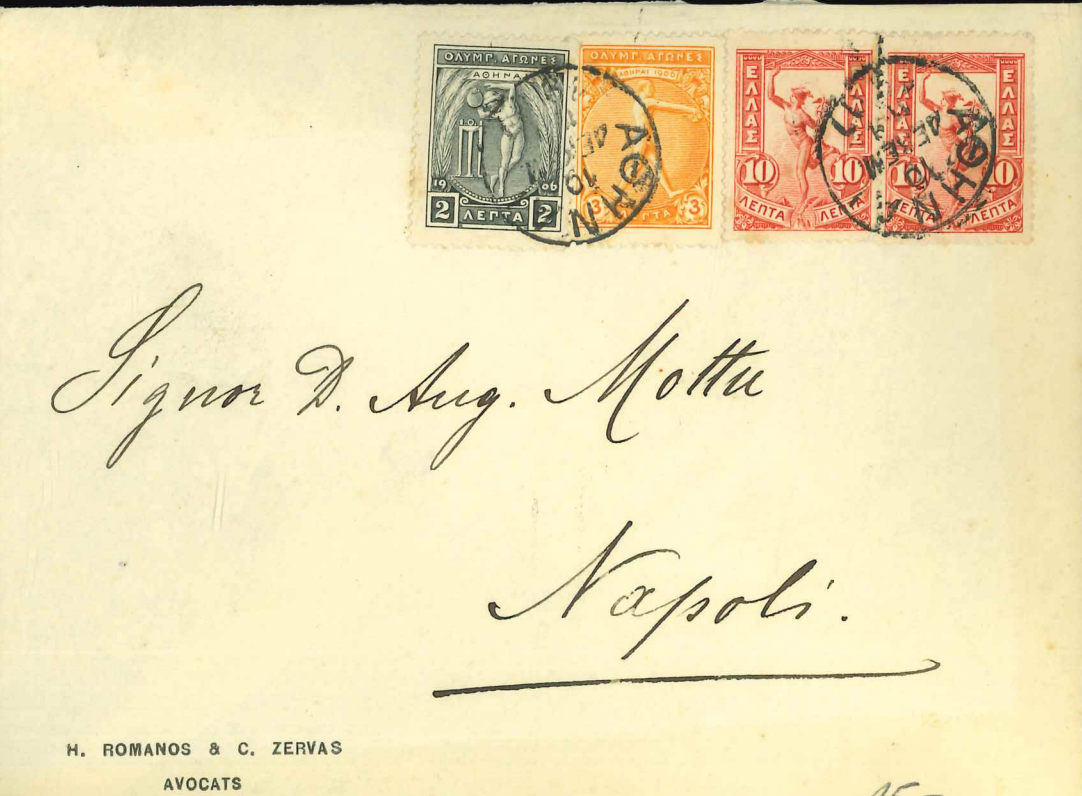 ΟΛΥΜΠ. ΑΓΩΝΕΣ
ΑΘΗΝΑΙ
19 06
2 ΛΕΠΤΑ 2
ΟΛΥΜΠ. ΑΓΩΝΕΣ
ΑΘΗΝΑΙ 1906
3 ΛΕΠΤΑ 3
ΕΛΛΑΣ ΕΛΛΑΣ
10 10
ΛΕΠΤΑ ΛΕΠΤΑ
ΕΛΛΑΣ ΕΛΛΑΣ
10 10
ΛΕΠΤΑ ΛΕΠΤΑ
Signor D. Aug. Mottu
Napoli.
H. ROMANOS & C. ZERVAS
AVOCATS